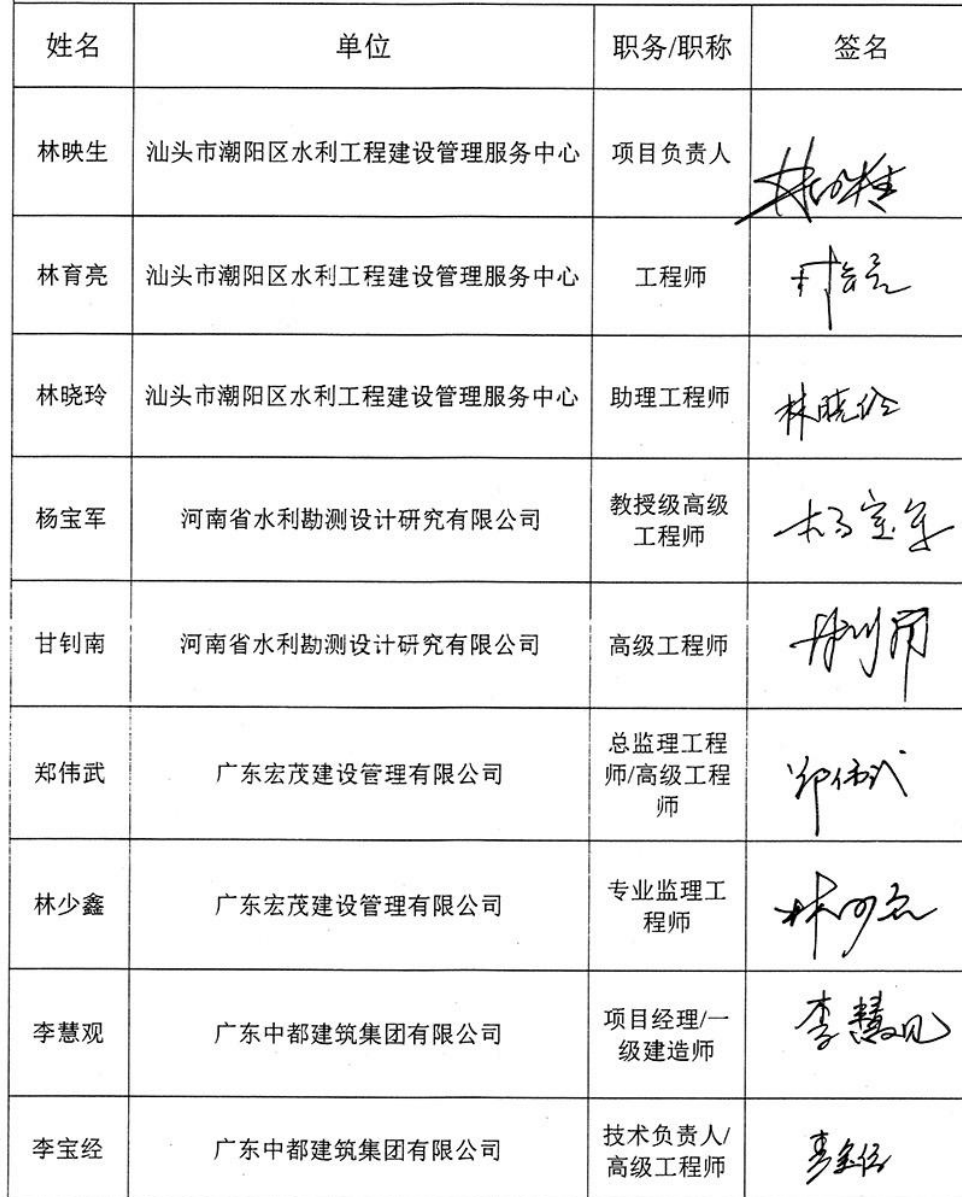 姓名 单位 职务/职称 签名
林映生 汕头市潮阳区水利工程建设管理服务中心 项目负责人
林育亮 汕头市潮阳区水利工程建设管理服务中心 工程师
林晓玲 汕头市潮阳区水利工程建设管理服务中心 助理工程师 林晓玲
杨宝军 河南省水利勘测设计研究有限公司 教授级高级
工程师 杨宝军
甘钊南 河南省水利勘测设计研究有限公司 高级工程师
郑伟武 广东宏茂建设管理有限公司 总监理工程
师/高级工程
师 郑伟武
林少鑫 广东宏茂建设管理有限公司 专业监理工
程师
李慧观 广东中都建筑集团有限公司 项目经理/一
级建造师 李慧观
李宝经 广东中都建筑集团有限公司 技术负责人/
高级工程师